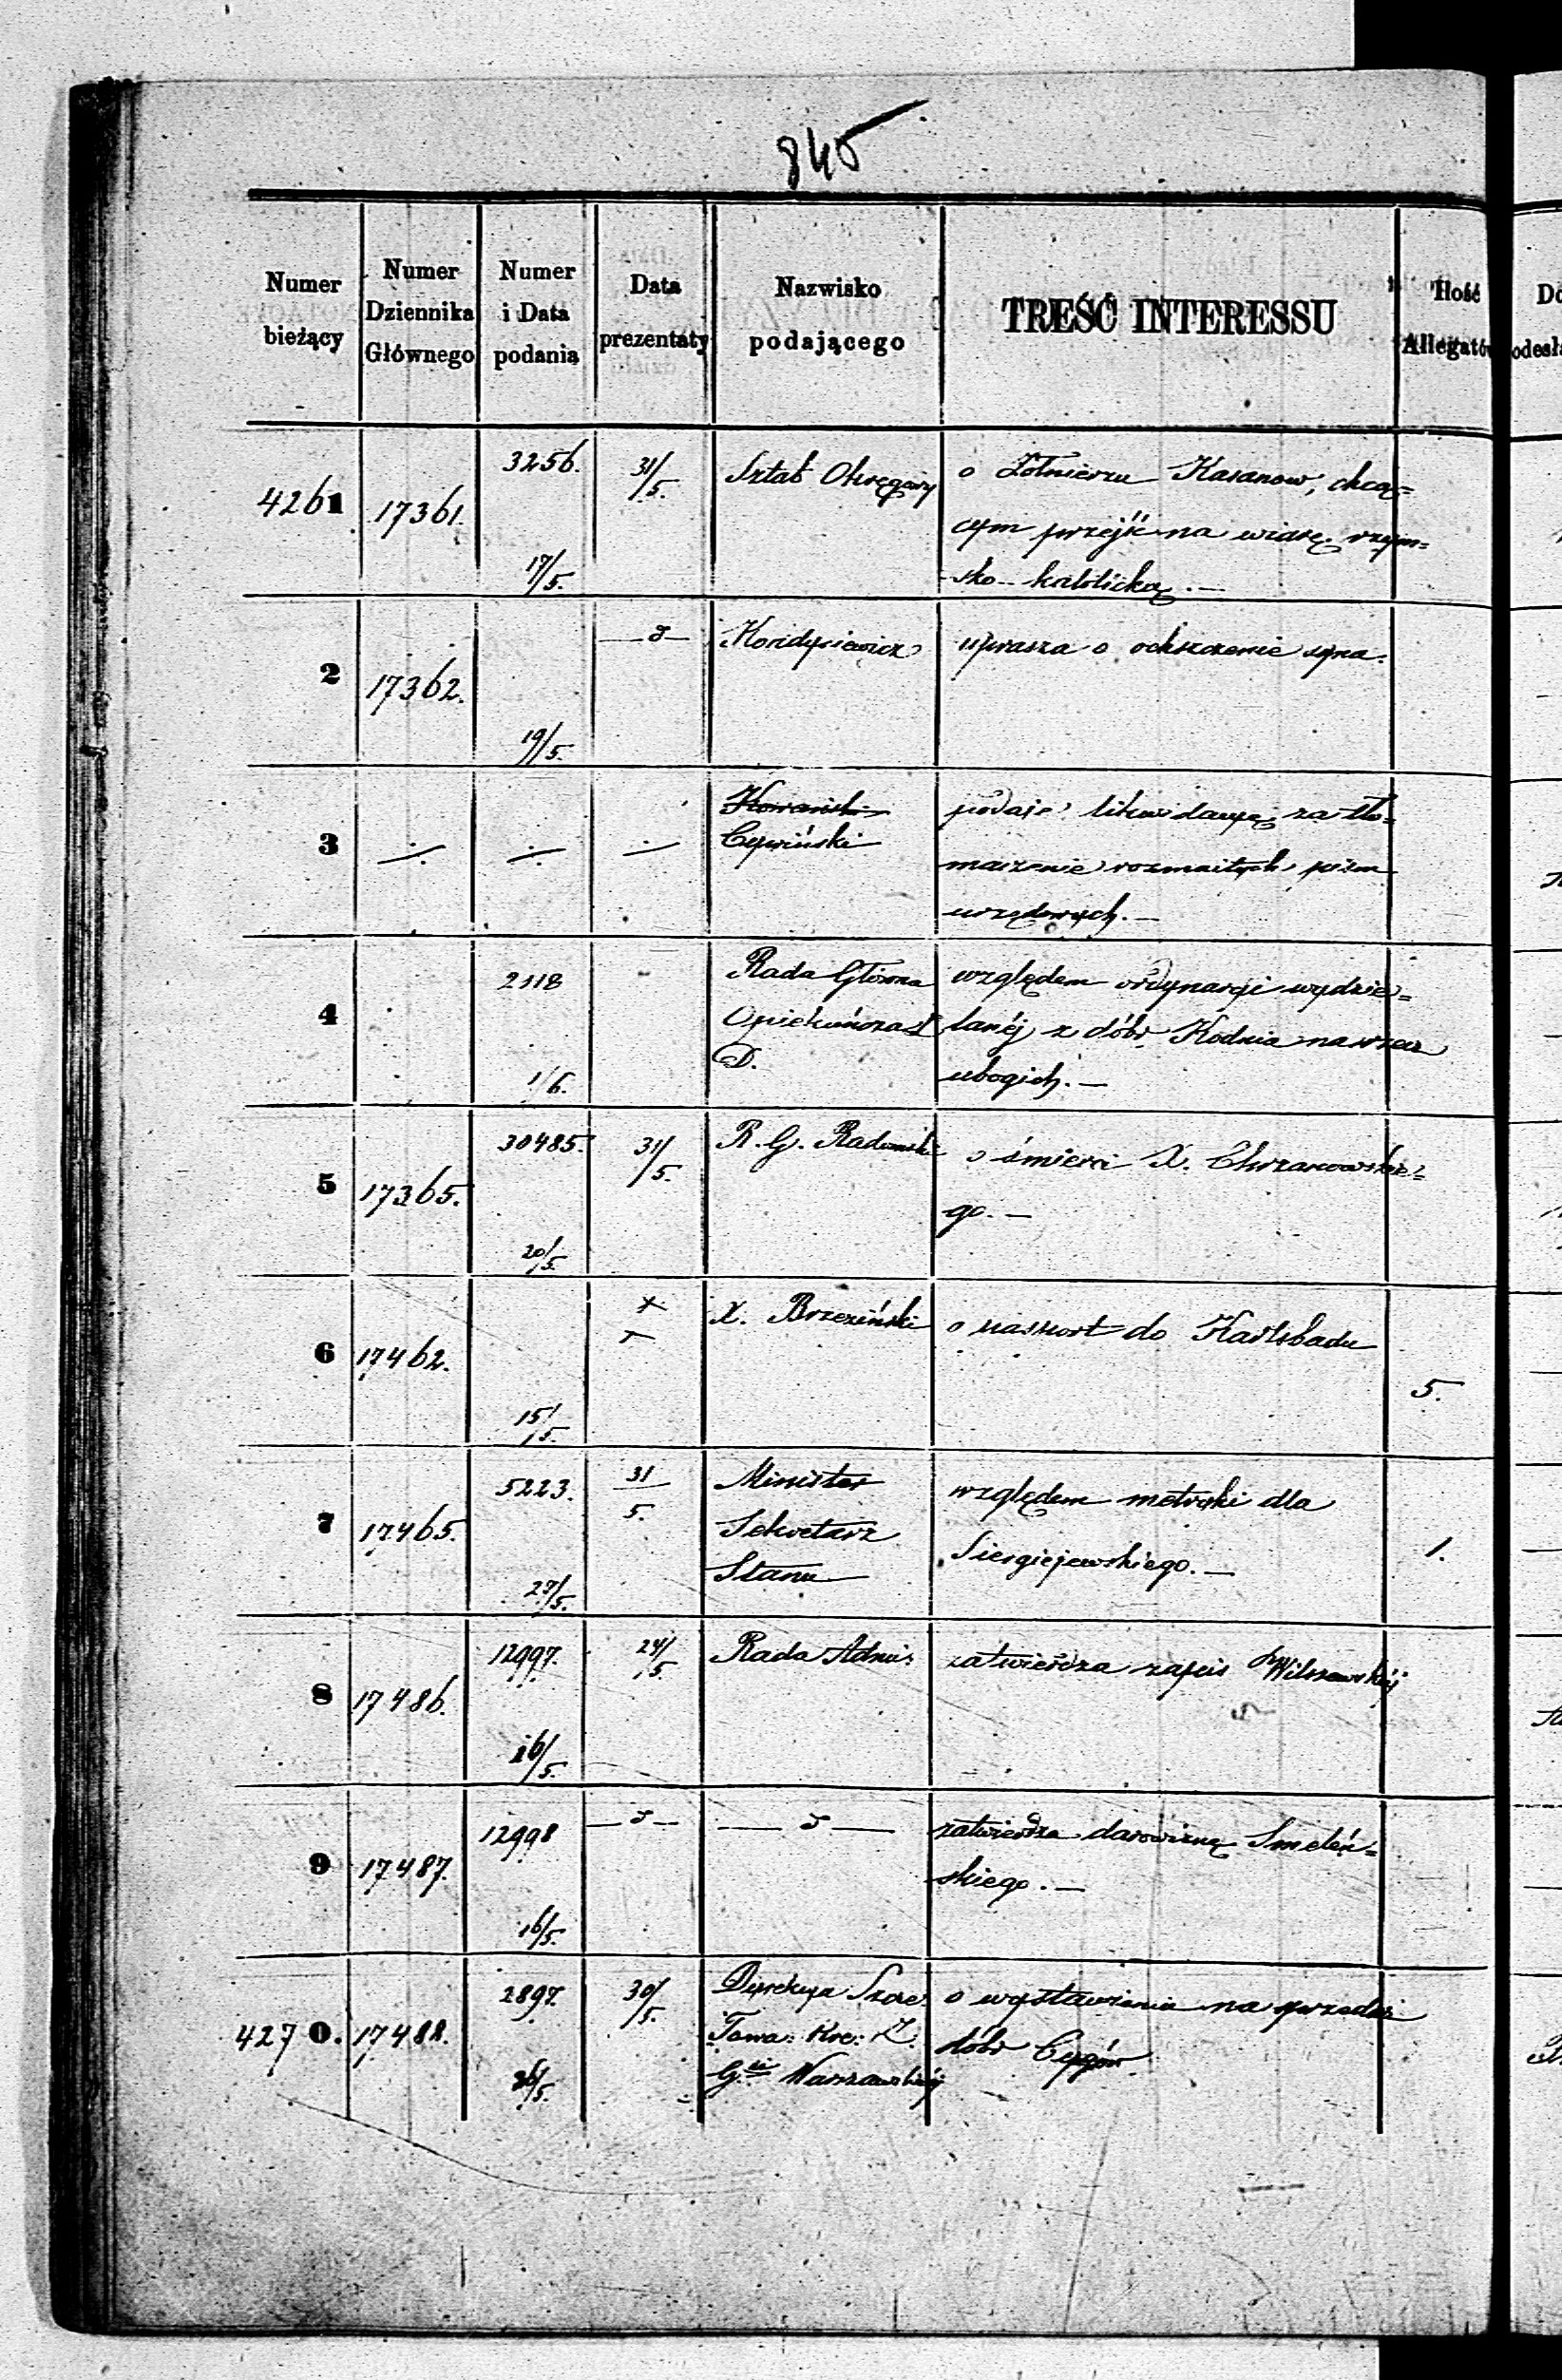 845
Numer bieżący
Numer Dziennika Głównego
Numer i Data podania
Data prezentaty
Nazwisko podającego
TREŚĆ INTERESSU
Ilość Allegatów
4261 17361. 3256. 17/5. 31/5. Sztab Okręgowy
o Żołnierzu Kasanow, chcą=
cym przejść na wiarę rzym=
sko-katolicką. —
2 17362. 19/5. —d—
uprasza o ochszczenie syna.
3 —.— —.— —.— Cywiński
podaje likwidacyę za tło=
maczenie rozmaitych pism
urzędowych. —
4 2118 1/6.
Rada Główna
Opiekuńcza
D.
względem ordynaryi wydzie=
lanéj z dóbr Kodnia na rzecz
ubogich. —
5 17365. 30485. 20/5. 31/5. R. G. Radomski
o śmierci X. Chrzanowskie=
go. —
6 17462. 15/5. X. Brzeziński
o passport do Karlsbadu
5.
7 17465. 5223. 27/5. 31/5.
Minister
Sekretarz
Stanu
względem metryki dla
Siergiejewskiego. —
1.
8 17486. 12997. 16/5. 24/5. Rada Admi:
zatwierdza zapis Wilszewskiéj
9 17487. 12998 16/5. —d— —d—
zatwierdza darowiznę Smoleń=
skiego. —
4270. 17488. 2897. 26/5. 30/5.
Dyrekcya Szcze:
Towa: Kre: Z.
G.ii Warszawskiéj
o wystawieniu na sprzedaż
dóbr Cygów.